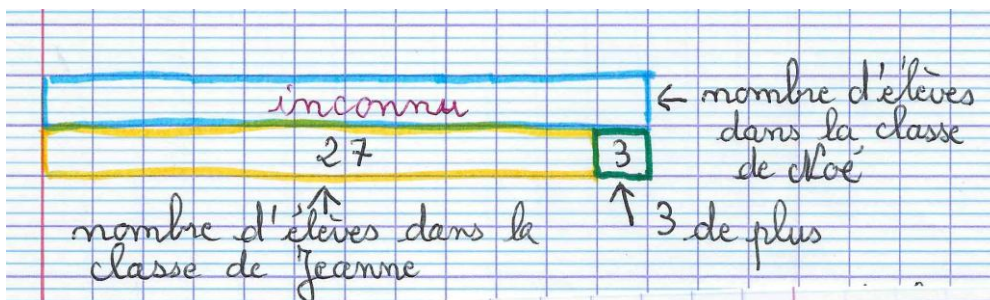 inconnu
27
3
← nombre d'élèves
dans la classe
de Noé
nombre d'élèves dans la
classe de Jeanne
3 de plus